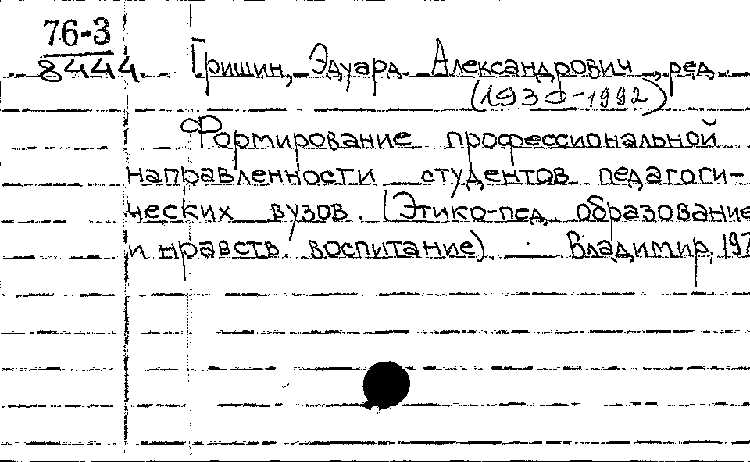 76-3
8444 Гришин, Эдуард Александрович, ред.
Формирование профессиональной
направленности студентов педагоги-
ческих вузов. (Этико-пед. образование
и нравств. воспитание). Владимир, 197